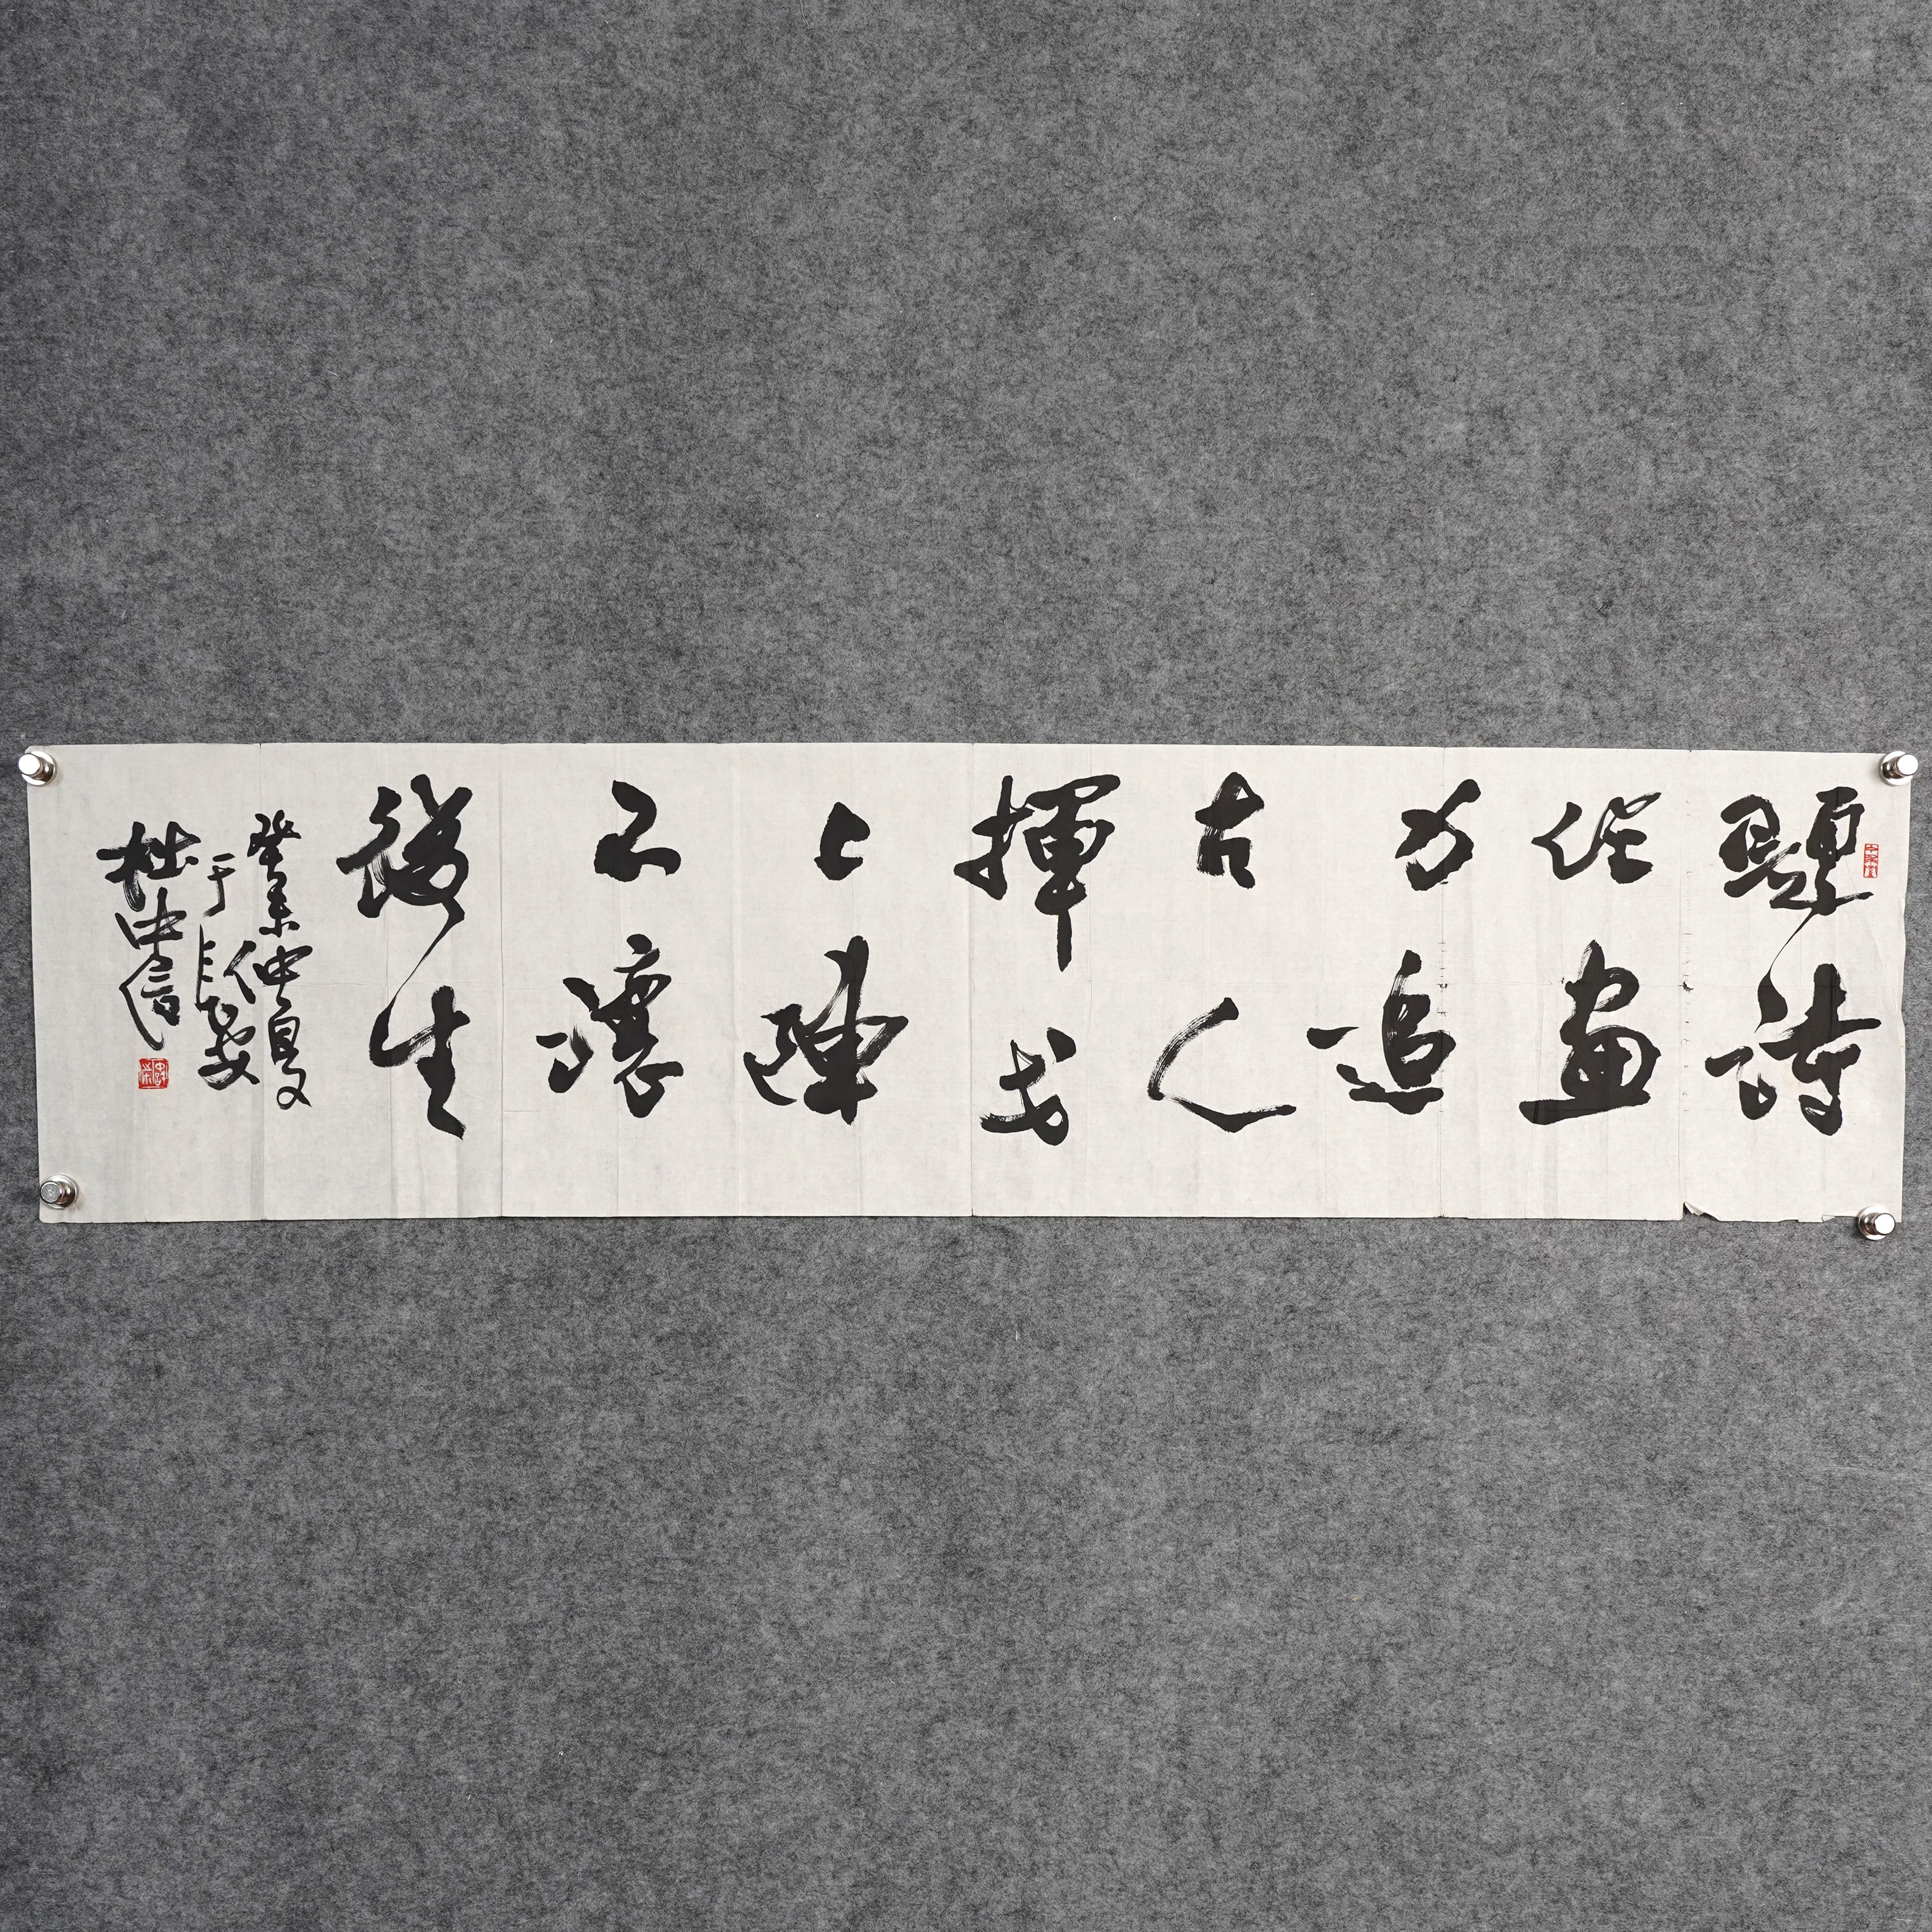 題詩
從畫
力追
古人
揮戈
上陣
不讓
後生
癸未仲夏
于長安
杜中信